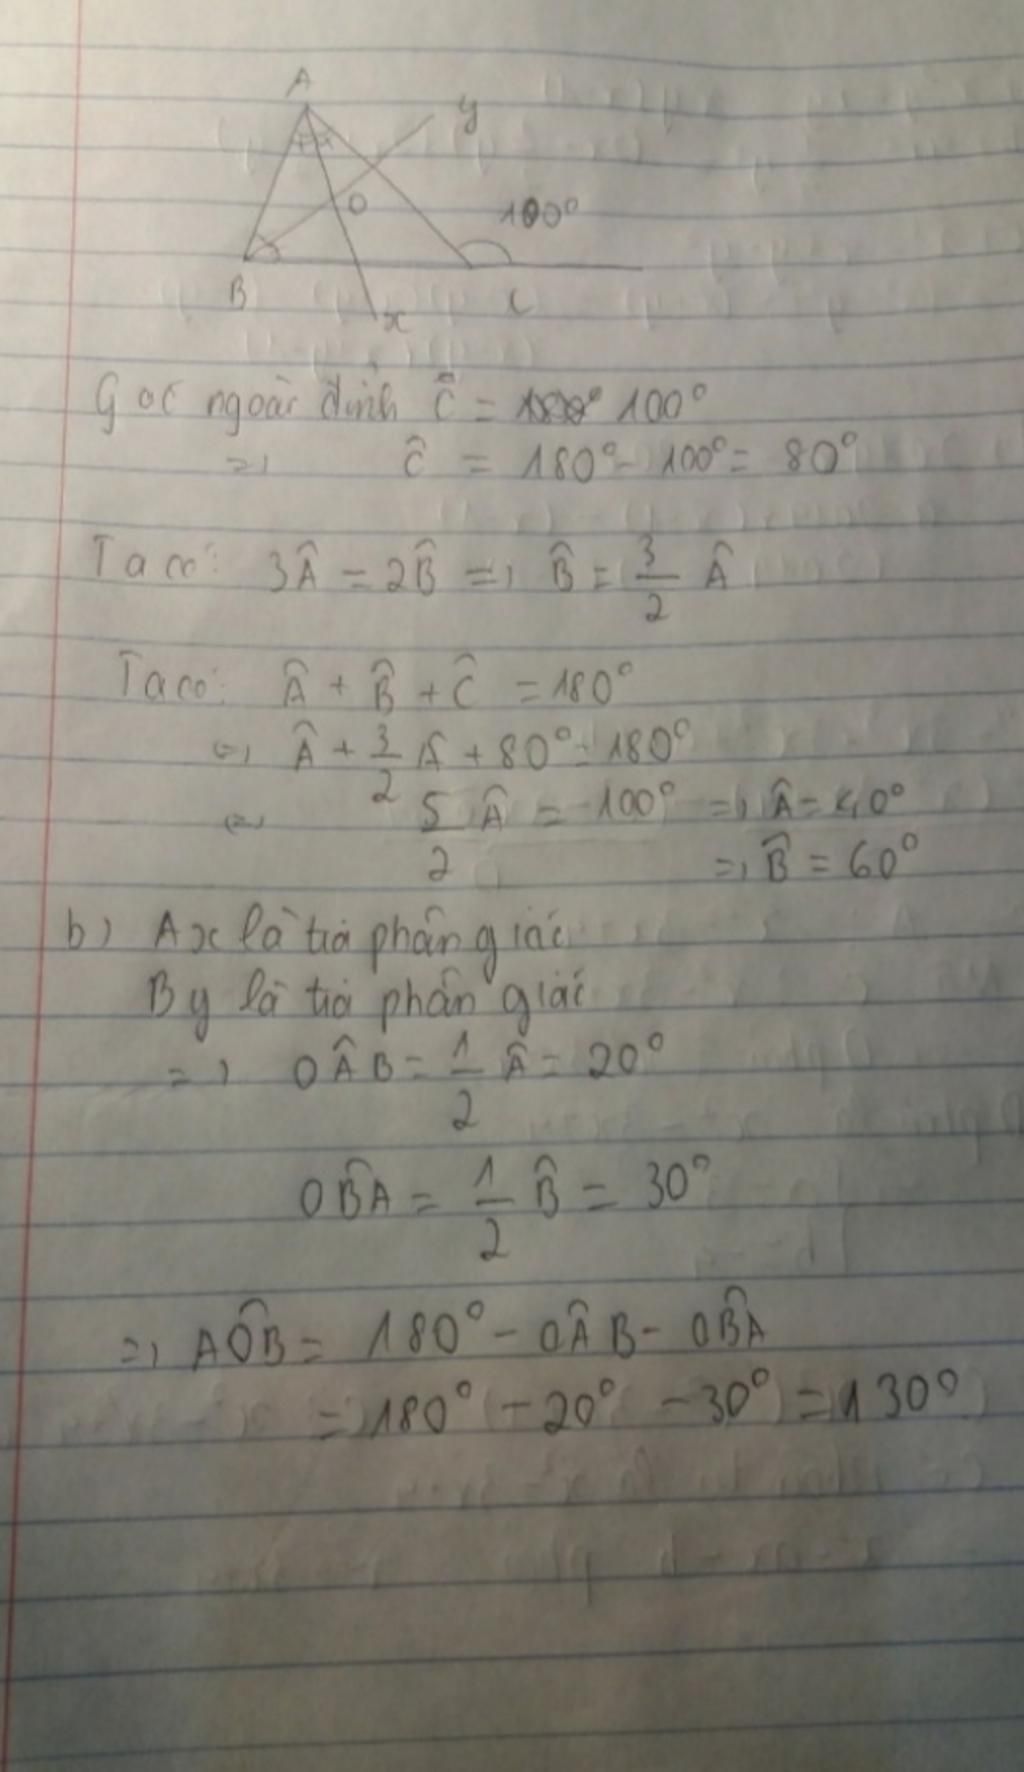 A
y
O
100°
B
x
C
Góc ngoài đỉnh Ĉ = 100°
=> Ĉ = 180° - 100° = 80°
Ta có: 3Â = 2B̂ => B̂ = 3/2 Â
Ta có: Â + B̂ + Ĉ = 180°
<=> Â + 3/2 Â + 80° = 180°
<=> 5/2 Â = 100° => Â = 40°
=> B̂ = 60°
b) Ax là tia phân giác
By là tia phân giác
=> OÂB = 1/2 Â = 20°
OB̂A = 1/2 B̂ = 30°
=> AÔB = 180° - OÂB - OB̂A
= 180° - 20° - 30° = 130°